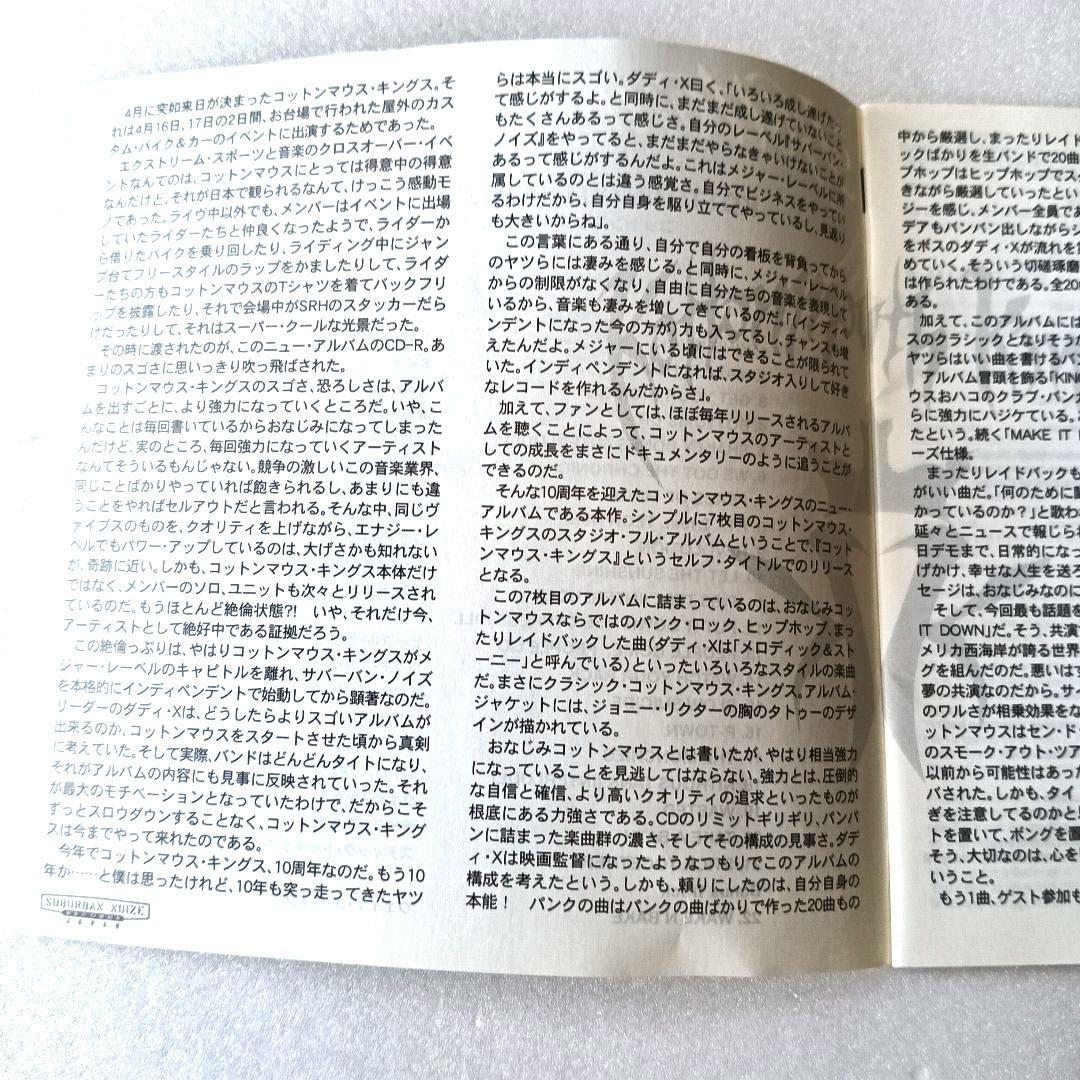 4月に突如来日が決まったコットンマウス・キングス。そ
れは4月16日、17日の2日間、お台場で行われた屋外のカス
タム・バイク&カーのイベントに出演するためであった。
エクストリーム・スポーツと音楽のクロスオーバー・イベ
ントなんてのは、コットンマウスにとっては得意中の得意
なんだけど、それが日本で観られるなんて、けっこう感動モ
ノであった。ライヴ中以外でも、メンバーはイベントに出場
していたライダーたちと仲良くなったようで、ライダーか
ら借りたバイクを乗り回したり、ライディング中にジャン
プ台でフリースタイルのラップをかましたりして、ライダ
ーたちの方もコットンマウスのTシャツを着てバックフリ
ップを披露したり、それで会場中がSRHのスタッカーだら
けだったりして、それはスーパー・クールな光景だった。
その時に渡されたのが、このニュー・アルバムのCD-R。あ
まりのスゴさに思いっきり吹っ飛ばされた。
コットンマウス・キングスのスゴさ、恐ろしさは、アルバ
ムを出すごとに、より強力になっていくところだ。いや、こ
んなことは毎回書いているからおなじみになってしまった
んだけど、実のところ、毎回強力になっていくアーティスト
なんてそういるもんじゃない。競争の激しいこの音楽業界、
同じことばかりやっていれば飽きられるし、あまりにも違
うことをやればセルアウトだと言われる。そんな中、同じヴ
ァイブスのものを、クオリティを上げながら、エナジー・レ
ベルでもパワー・アップしているのは、大げさかも知れない
が、奇跡に近い。しかも、コットンマウス・キングス本体だけ
ではなく、メンバーのソロ、ユニットも次々とリリースされ
ているのだ。もうほとんど絶倫状態?! いや、それだけ今、
アーティストとして絶好中である証拠だろう。
この絶倫っぷりは、やはりコットンマウス・キングスがメ
ジャー・レーベルのキャピトルを離れ、サバーバン・ノイズ
を本格的にインディペンデントで始動してから顕著なのだ。
リーダーのダディ・Xは、どうしたらよりスゴいアルバムが
出来るのか、コットンマウスをスタートさせた頃から真剣
に考えていた。そして実際、バンドはどんどんタイトになり、
それがアルバムの内容にも見事に反映されていった。それ
が最大のモチベーションとなっていたわけで、だからこそ
ずっとスロウダウンすることなく、コットンマウス・キング
スは今までやって来れたのである。
今年でコットンマウス・キングス、10周年なのだ。もう10
年か……と僕は思ったけれど、10年も突っ走ってきたヤツ
SUBURBAN NOIZE
RECORDS
らは本当にスゴい。ダディ・X曰く、「いろいろ成し遂げたっ
て感じがするよ。と同時に、まだまだ成し遂げていないこと
もたくさんあるって感じさ。自分のレーベル『サバーバン・
ノイズ』をやってると、まだまだやらなきゃいけないことが
あるって感じがするんだよ。これはメジャー・レーベルに所
属しているのとは違う感覚さ。自分でビジネスをやってい
るわけだから、自分自身を駆り立ててやっているし、見返り
も大きいからね」。
この言葉にある通り、自分で自分の看板を背負ってから
のヤツらには凄みを感じる。と同時に、メジャー・レーベル
からの制限がなくなり、自由に自分たちの音楽を表現して
いるから、音楽も凄みを増してきているのだ。「(インディペ
ンデントになった今の方が)力も入ってるし、チャンスも増
えたんだよ。メジャーにいる頃にはできることが限られて
いた。インディペンデントになれば、スタジオ入りして好き
なレコードを作れるんだからさ」。
加えて、ファンとしては、ほぼ毎年リリースされるアルバ
ムを聴くことによって、コットンマウスのアーティストと
しての成長をまさにドキュメンタリーのように追うことが
できるのだ。
そんな10周年を迎えたコットンマウス・キングスのニュー・
アルバムである本作。シンプルに7枚目のコットンマウス・
キングスのスタジオ・フル・アルバムということで、『コット
ンマウス・キングス』というセルフ・タイトルでのリリース
となる。
この7枚目のアルバムに詰まっているのは、おなじみコッ
トンマウスならではのパンク・ロック、ヒップホップ、まっ
たりレイドバックした曲(ダディ・Xは「メロディック&スト
ーニー」と呼んでいる)といったいろいろなスタイルの楽曲
だ。まさにクラシック・コットンマウス・キングス。アルバム・
ジャケットには、ジョニー・リクターの胸のタトゥーのデザ
インが描かれている。
おなじみコットンマウスとは書いたが、やはり相当強力
になっていることを見逃してはならない。強力とは、圧倒的
な自信と確信、より高いクオリティの追求といったものが
根底にある力強さである。CDのリミットギリギリ、パンパ
ンに詰まった楽曲群の濃さ、そしてその構成の見事さ。ダデ
ィ・Xは映画監督になったようなつもりでこのアルバムの
構成を考えたという。しかも、頼りにしたのは、自分自身の
本能! パンクの曲はパンクの曲ばかりで作った20曲もの
中から厳選し、まったりレイド
ックばかりを生バンドで20曲
プホップはヒップホップでス
きながら厳選していったとい
ジーを感じ、メンバー全員で
デアもバンバン出しながらシ
をボスのダディ・Xが流れを
めていく。そういう切磋琢磨
は作られたわけである。全20
ある。
加えて、このアルバムには
スのクラシックとなりそうな
ヤツらはいい曲を書けるバン
アルバム冒頭を飾る「KING
ウスおハコのクラブ・バン
らに強力にハジケている。
たという。続く「MAKE IT
ーズ仕様。
まったりレイドバックも
がいい曲だ。「何のために
かっているのか?」と歌わ
延々とニュースで報じられ
日デモまで、日常的になっ
げかけ、幸せな人生を送ろ
セージは、おなじみなのに
そして、今回最も話題を
IT DOWN」だ。そう、共演
メリカ西海岸が誇る世界
グを組んだのだ。悪いはず
夢の共演なのだから。サイ
のワルさが相乗効果をな
ットンマウスはセン・ド
のスモーク・アウト・ツア
以前から可能性はあった
バされた。しかも、タイ
ぎを注意してるのかと
トを置いて、ボングを置
そう、大切なのは、心を
いうこと。
もう1曲、ゲスト参加も